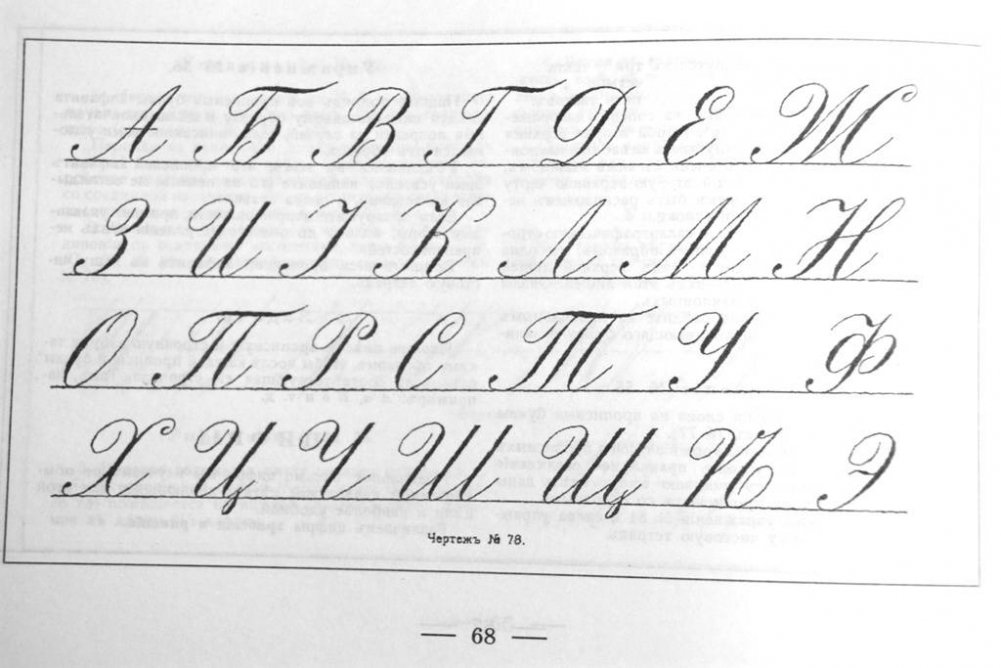 А Б В Г Д Е Ж
З И І К Л М Н
О П Р С Т У Ф
Х Ц Ч Ш Щ Ѣ Э
Чертежъ № 78.
— 68 —